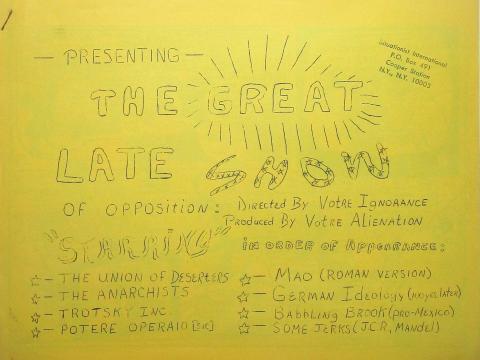 — PRESENTING —
Situationist International
P.O. Box 491
Cooper Station
N.Y., N.Y. 10003
THE GREAT
LATE SHOW
OF OPPOSITION: DIRECTED BY VOTRE IGNORANCE
PRODUCED BY VOTRE ALIENATION
"STARRING" IN ORDER OF APPEARANCE:
☆ — THE UNION OF DESERTERS
☆ — THE ANARCHISTS
☆ — TROTSKY INC.
☆ — POTERE OPERAIO [SIC]
☆ — MAO (ROMAN VERSION)
☆ — GERMAN IDEOLOGY
☆ — BABBLING BROOK (PRO-MEXICO)
☆ — SOME JERKS (JCR, MANDEL)